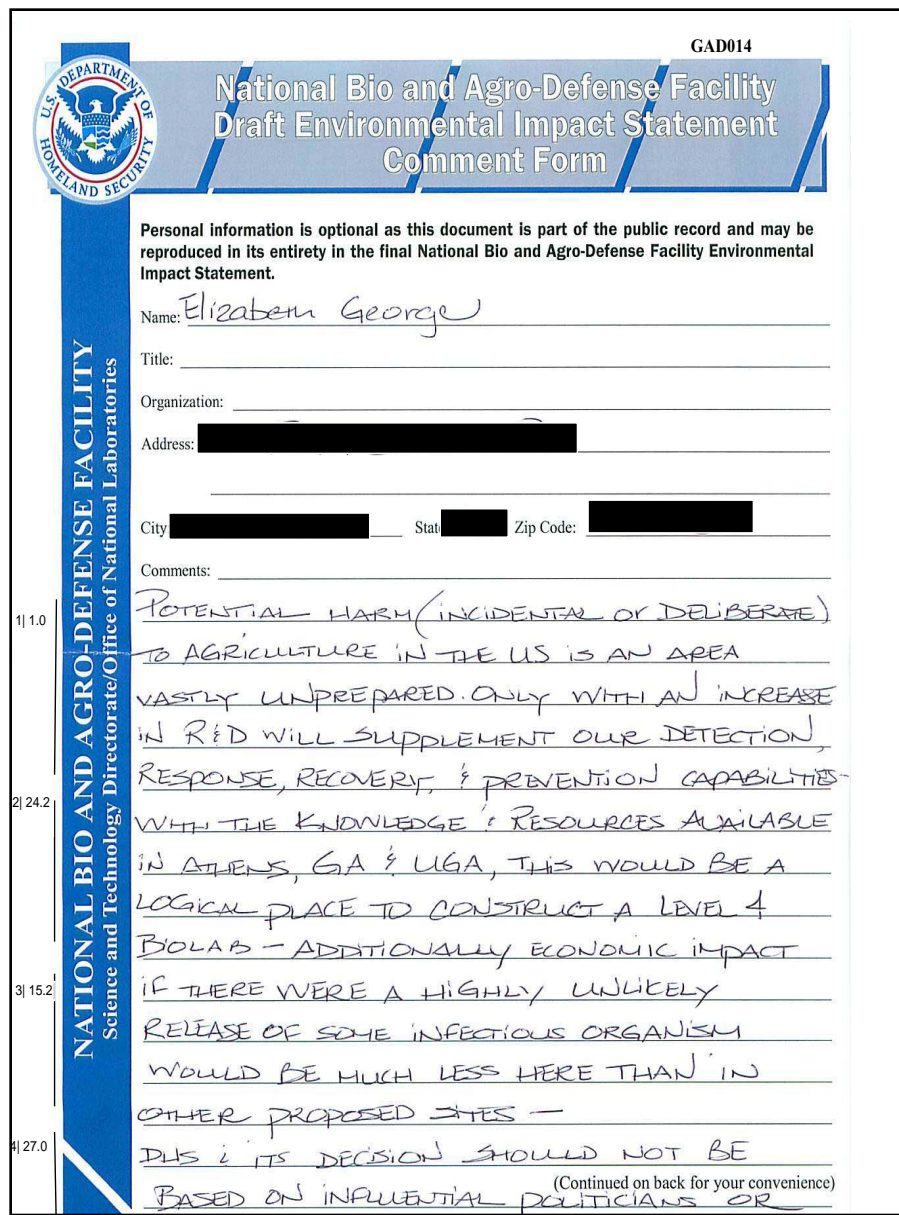 GAD014
U.S. DEPARTMENT OF HOMELAND SECURITY
National Bio and Agro-Defense Facility
Draft Environmental Impact Statement
Comment Form
NATIONAL BIO AND AGRO-DEFENSE FACILITY
Science and Technology Directorate/Office of National Laboratories
Personal information is optional as this document is part of the public record and may be
reproduced in its entirety in the final National Bio and Agro-Defense Facility Environmental
Impact Statement.
Name: Elizabeth George
Title:
Organization:
Address:
City State Zip Code:
Comments:
1| 1.0
POTENTIAL HARM (INCIDENTAL or DELIBERATE)
TO AGRICULTURE IN THE US is AN AREA
VASTLY UNPREPARED. ONLY WITH AN INCREASE
IN R&D WILL SUPPLEMENT OUR DETECTION,
RESPONSE, RECOVERY, & PREVENTION CAPABILITIES-
2| 24.2
WITH THE KNOWLEDGE & RESOURCES AVAILABLE
IN ATHENS, GA & UGA, THIS WOULD BE A
LOGICAL PLACE TO CONSTRUCT A LEVEL 4
BIOLAB - ADDITIONALLY ECONOMIC IMPACT
3| 15.2
IF THERE WERE A HIGHLY UNLIKELY
RELEASE OF SOME INFECTIOUS ORGANISM
WOULD BE MUCH LESS HERE THAN IN
OTHER PROPOSED SITES -
4| 27.0
DHS & ITS DECISION SHOULD NOT BE
(Continued on back for your convenience)
BASED ON INFLUENTIAL POLITICIANS OR